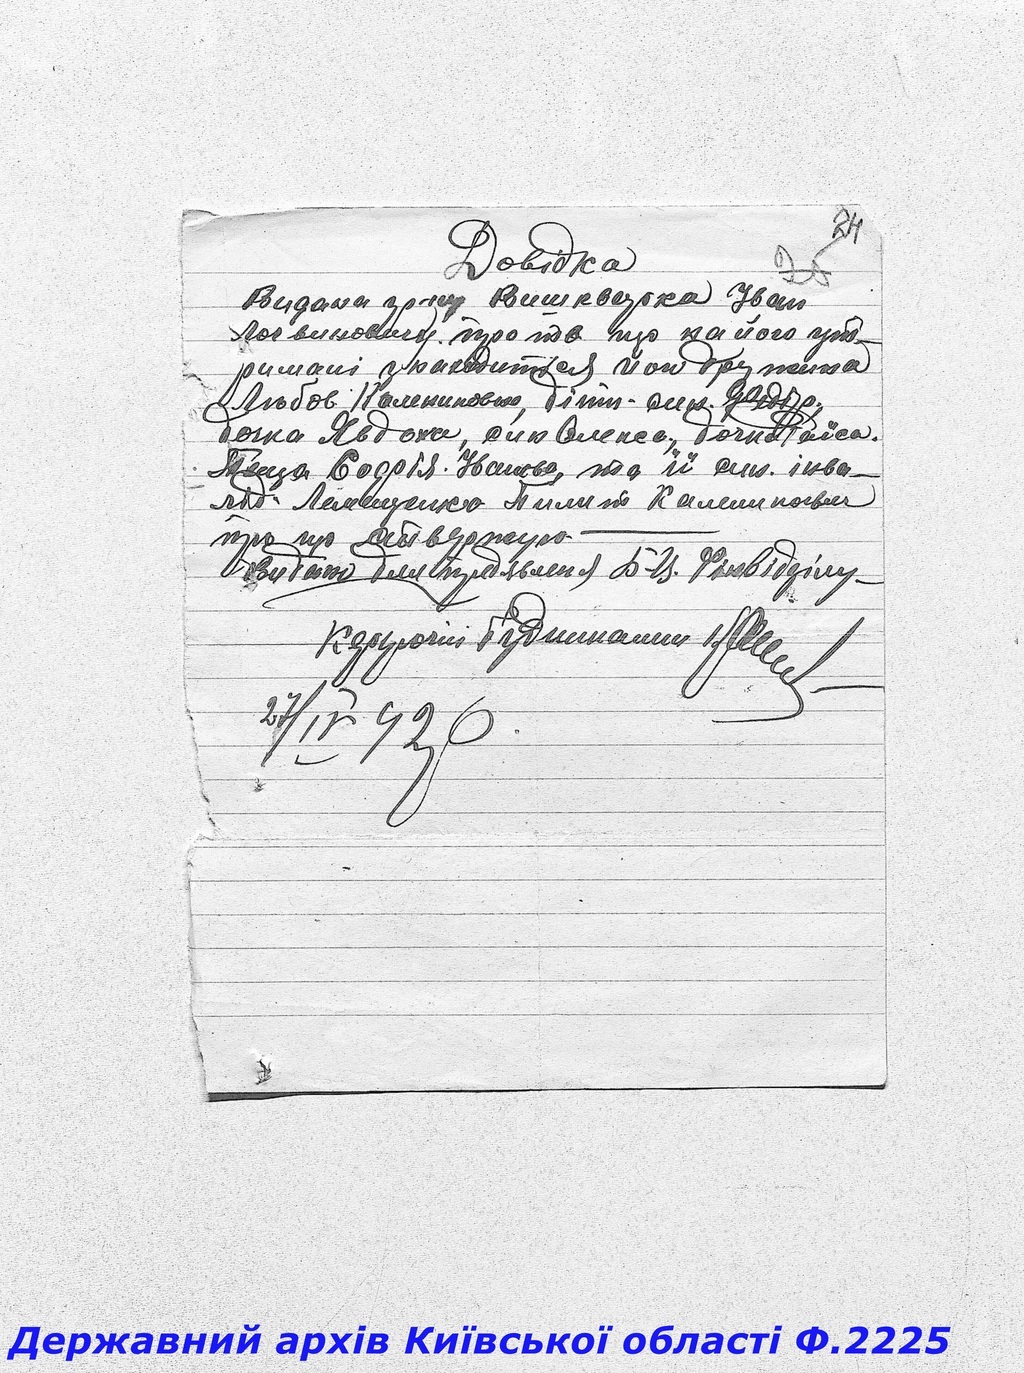 24
26
Довідка
Видана гр-ну Вишкварка Іван
Логвинович про те що на його ут-
римані знаходится його дружина
Любов Калениковна, діти - син Федір,
дочка Явдоха, син Олекса, дочка Раїса.
Теща Софія Іванівна, та її син інва-
лід Лемещенко Пилип Каленикович
про що стверджую
Видано для предявленя Б-Ц. Фінвідділу
Керуючий будинками
27/IV 42 р.
Державний архів Київської області Ф.2225